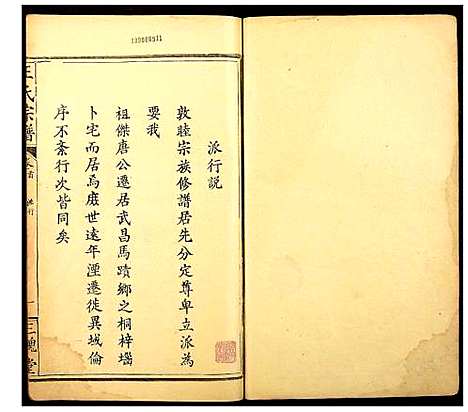 派行説
敦睦宗族修譜居先分定尊卑立派為
要我
祖傑唐公遷居武昌馬蹟鄉之桐梓堖
卜宅而居焉庶世遠年湮遷徙異域倫
序不紊行次皆同矣
王氏宗譜
卷首
派行
一
三槐堂